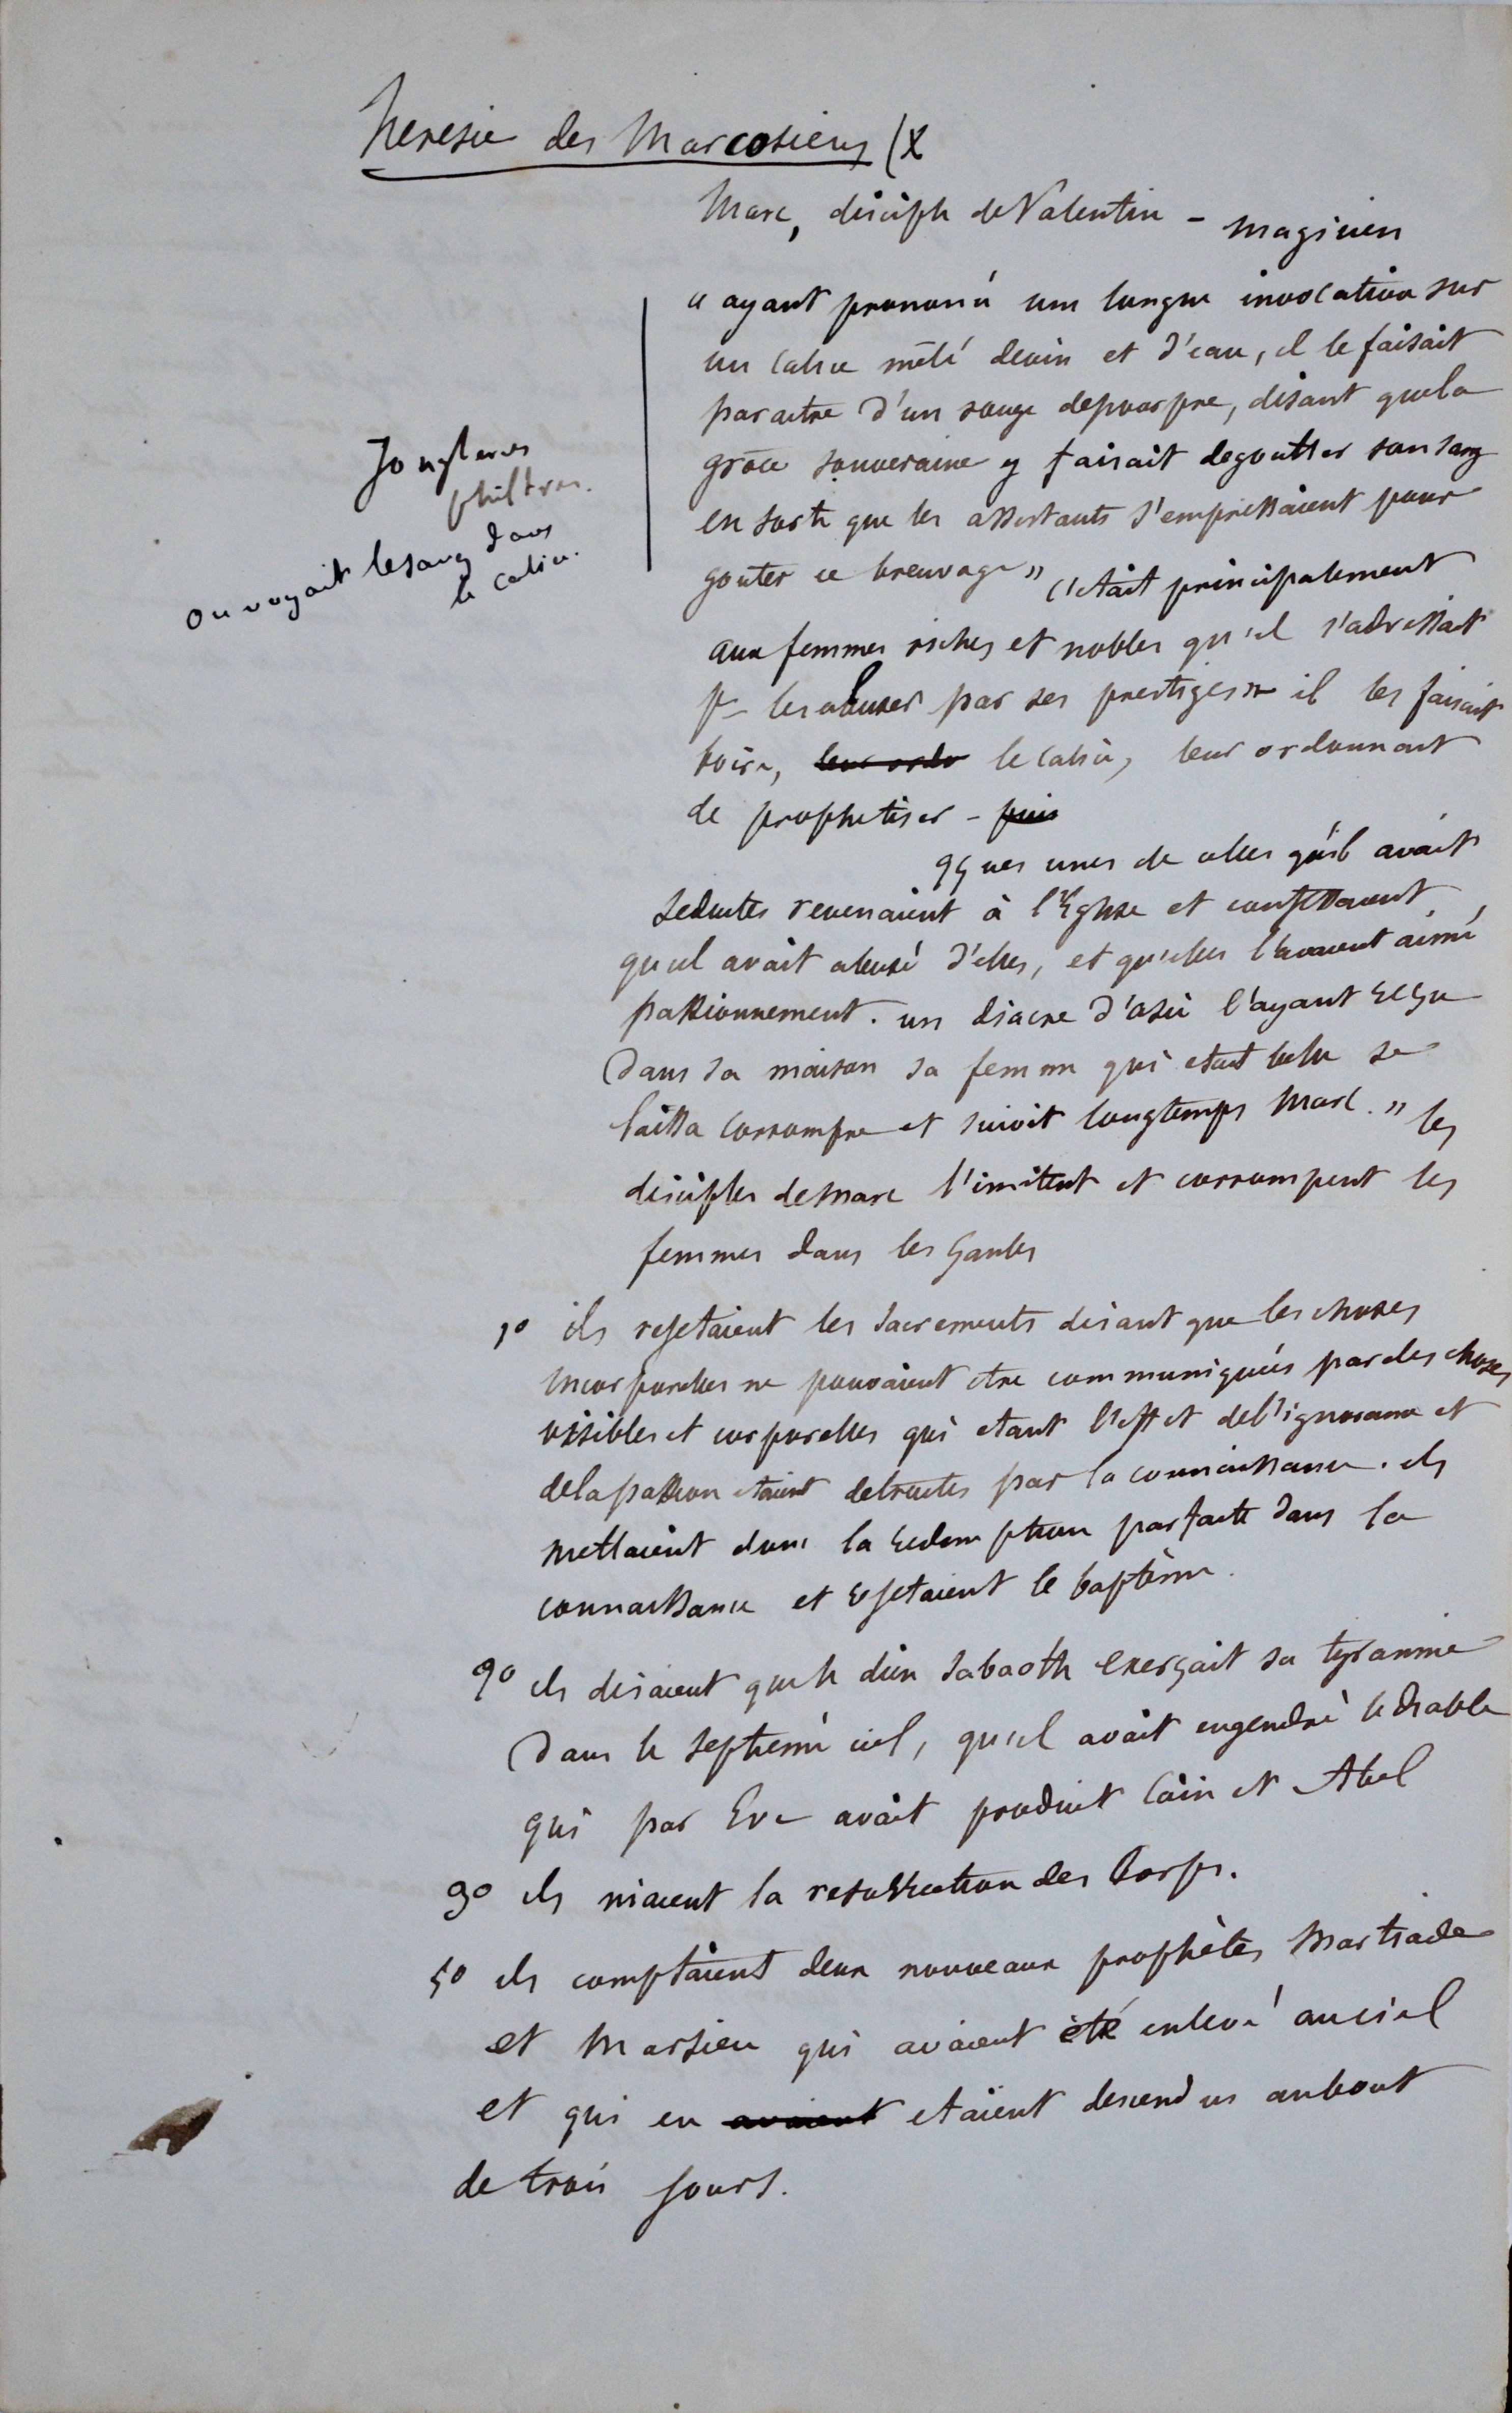 heresie des Marcosiens (X
Marc, disciple de Valentin - magicien
« ayant prononcé une longue invocation sur
un calice mêlé de vin et d'eau, il le faisait
paraitre d'un rouge de pourpre, disant que la
grâce souveraine y faisait degoutter son sang
en sorte que les assistants s'empressaient pour
gouter ce breuvage » c'etait principalement
aux femmes riches et nobles qu'il s'adressait
pr les abuser par ses prestiges » il les faisait
boire, leur ordo le calice, leur ordonnant
de prophetiser - puis
qques unes de celles qu'il avait
seduites revenaient à l'Eglise et confessaient
qu'il avait abusé d'elles, et qu'elles l'avaient aimé
passionnement. un diacre d'asie l'ayant reçu
dans sa maison sa femme qui etait belle se
laissa corrompre et suivit longtemps Marc. » les
disciples de Marc l'imitent et corrompent les
femmes dans les Gaules
Jongleries
philtres.
on voyait le sang dans
le calice.
1° ils rejetaient les sacrements disant que les choses
incorporelles ne pouvaient etre communiquées par des choses
visibles et corporelles qui etant l'effet de l'ignorance et
de la passion etaient detruites par la connaissance. ils
mettaient donc la redemption parfaite dans la
connaissance et rejetaient le baptême.
2° ils disaient que le dieu Sabaoth exerçait sa tyrannie
dans le septieme ciel, qu'il avait engendré le diable
qui par Eve avait produit Caïn et Abel
3° ils niaient la resurrection des Corps.
5° ils comptaient deux nouveaux prophètes Martiade
et Marsien qui avaient été enlevé au ciel
et qui en avaient etaient descendus au bout
de trois jours.